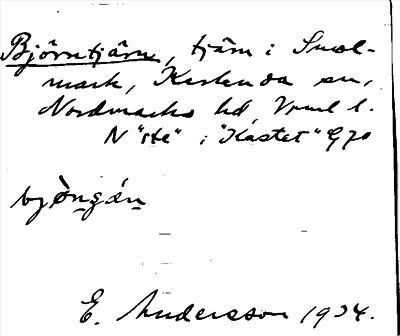 Björntjärn, tjärn i Smol-
mark, Karlanda sn,
Nordmarks hd, Vrml l.
N "ste" i "Kastet" G70
bjö̀ngán
E. Andersson 1934.